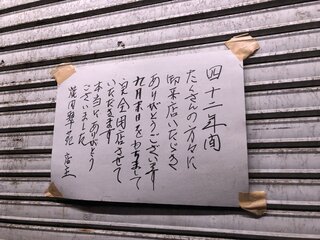 四十二年間
たくさんの方々に
御来店いただき
ありがとうございます
九月末日をもちまして
完全閉店させて
いただきます
本当にありがとう
ございました
店主